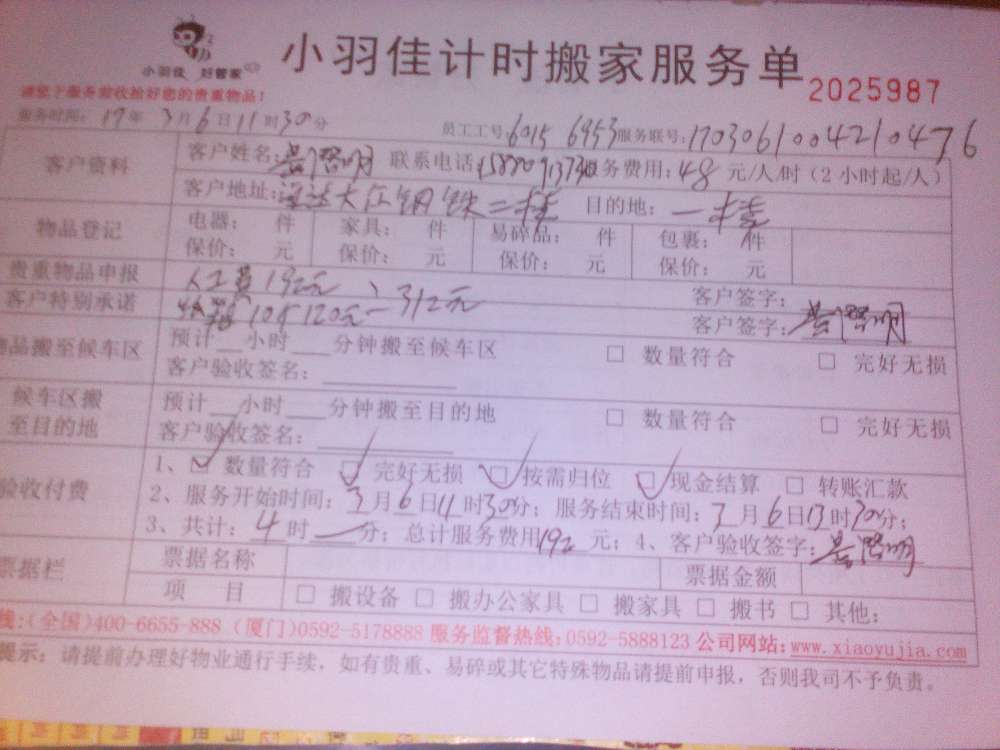 小羽佳 好管家
小羽佳计时搬家服务单
2025987
请您于服务前收拾好您的贵重物品！
服务时间：17年 3月6日11时30分 员工工号：6015 6953 服务联号：1703061004210476
客户资料 客户姓名： 联系电话： 服务费用：48元/人/时（2小时起/人）
客户地址： 大 钢铁二楼 目的地：一楼
物品登记 电器： 件 家具： 件 易碎品： 件 包裹： 件
保价： 元 保价： 元 保价： 元 保价： 元
贵重物品申报 人工费192元、312元 客户签字：
客户特别承诺 10 120元 客户签字：
物品搬至候车区 预计__小时___分钟搬至候车区 □ 数量符合 □ 完好无损
客户验收签名：
候车区搬至目的地 预计__小时___分钟搬至目的地 □ 数量符合 □ 完好无损
客户验收签名：
验收付费 1、☑ 数量符合 ☑ 完好无损 ☑ 按需归位 ☑ 现金结算 □ 转账汇款
2、服务开始时间：3月6日11时30分；服务结束时间：3月6日13时30分；
3、共计：4时—分；总计服务费用192元；4、客户验收签字：
票据栏 票据名称 票据金额
项 目 □ 搬设备 □ 搬办公家具 □ 搬家具 □ 搬书 □ 其他：
线：(全国)400-6655-888 (厦门)0592-5178888 服务监督热线：0592-5888123 公司网站：www.xiaoyujia.com
提示：请提前办理好物业通行手续，如有贵重、易碎或其它特殊物品请提前申报，否则我司不予负责。